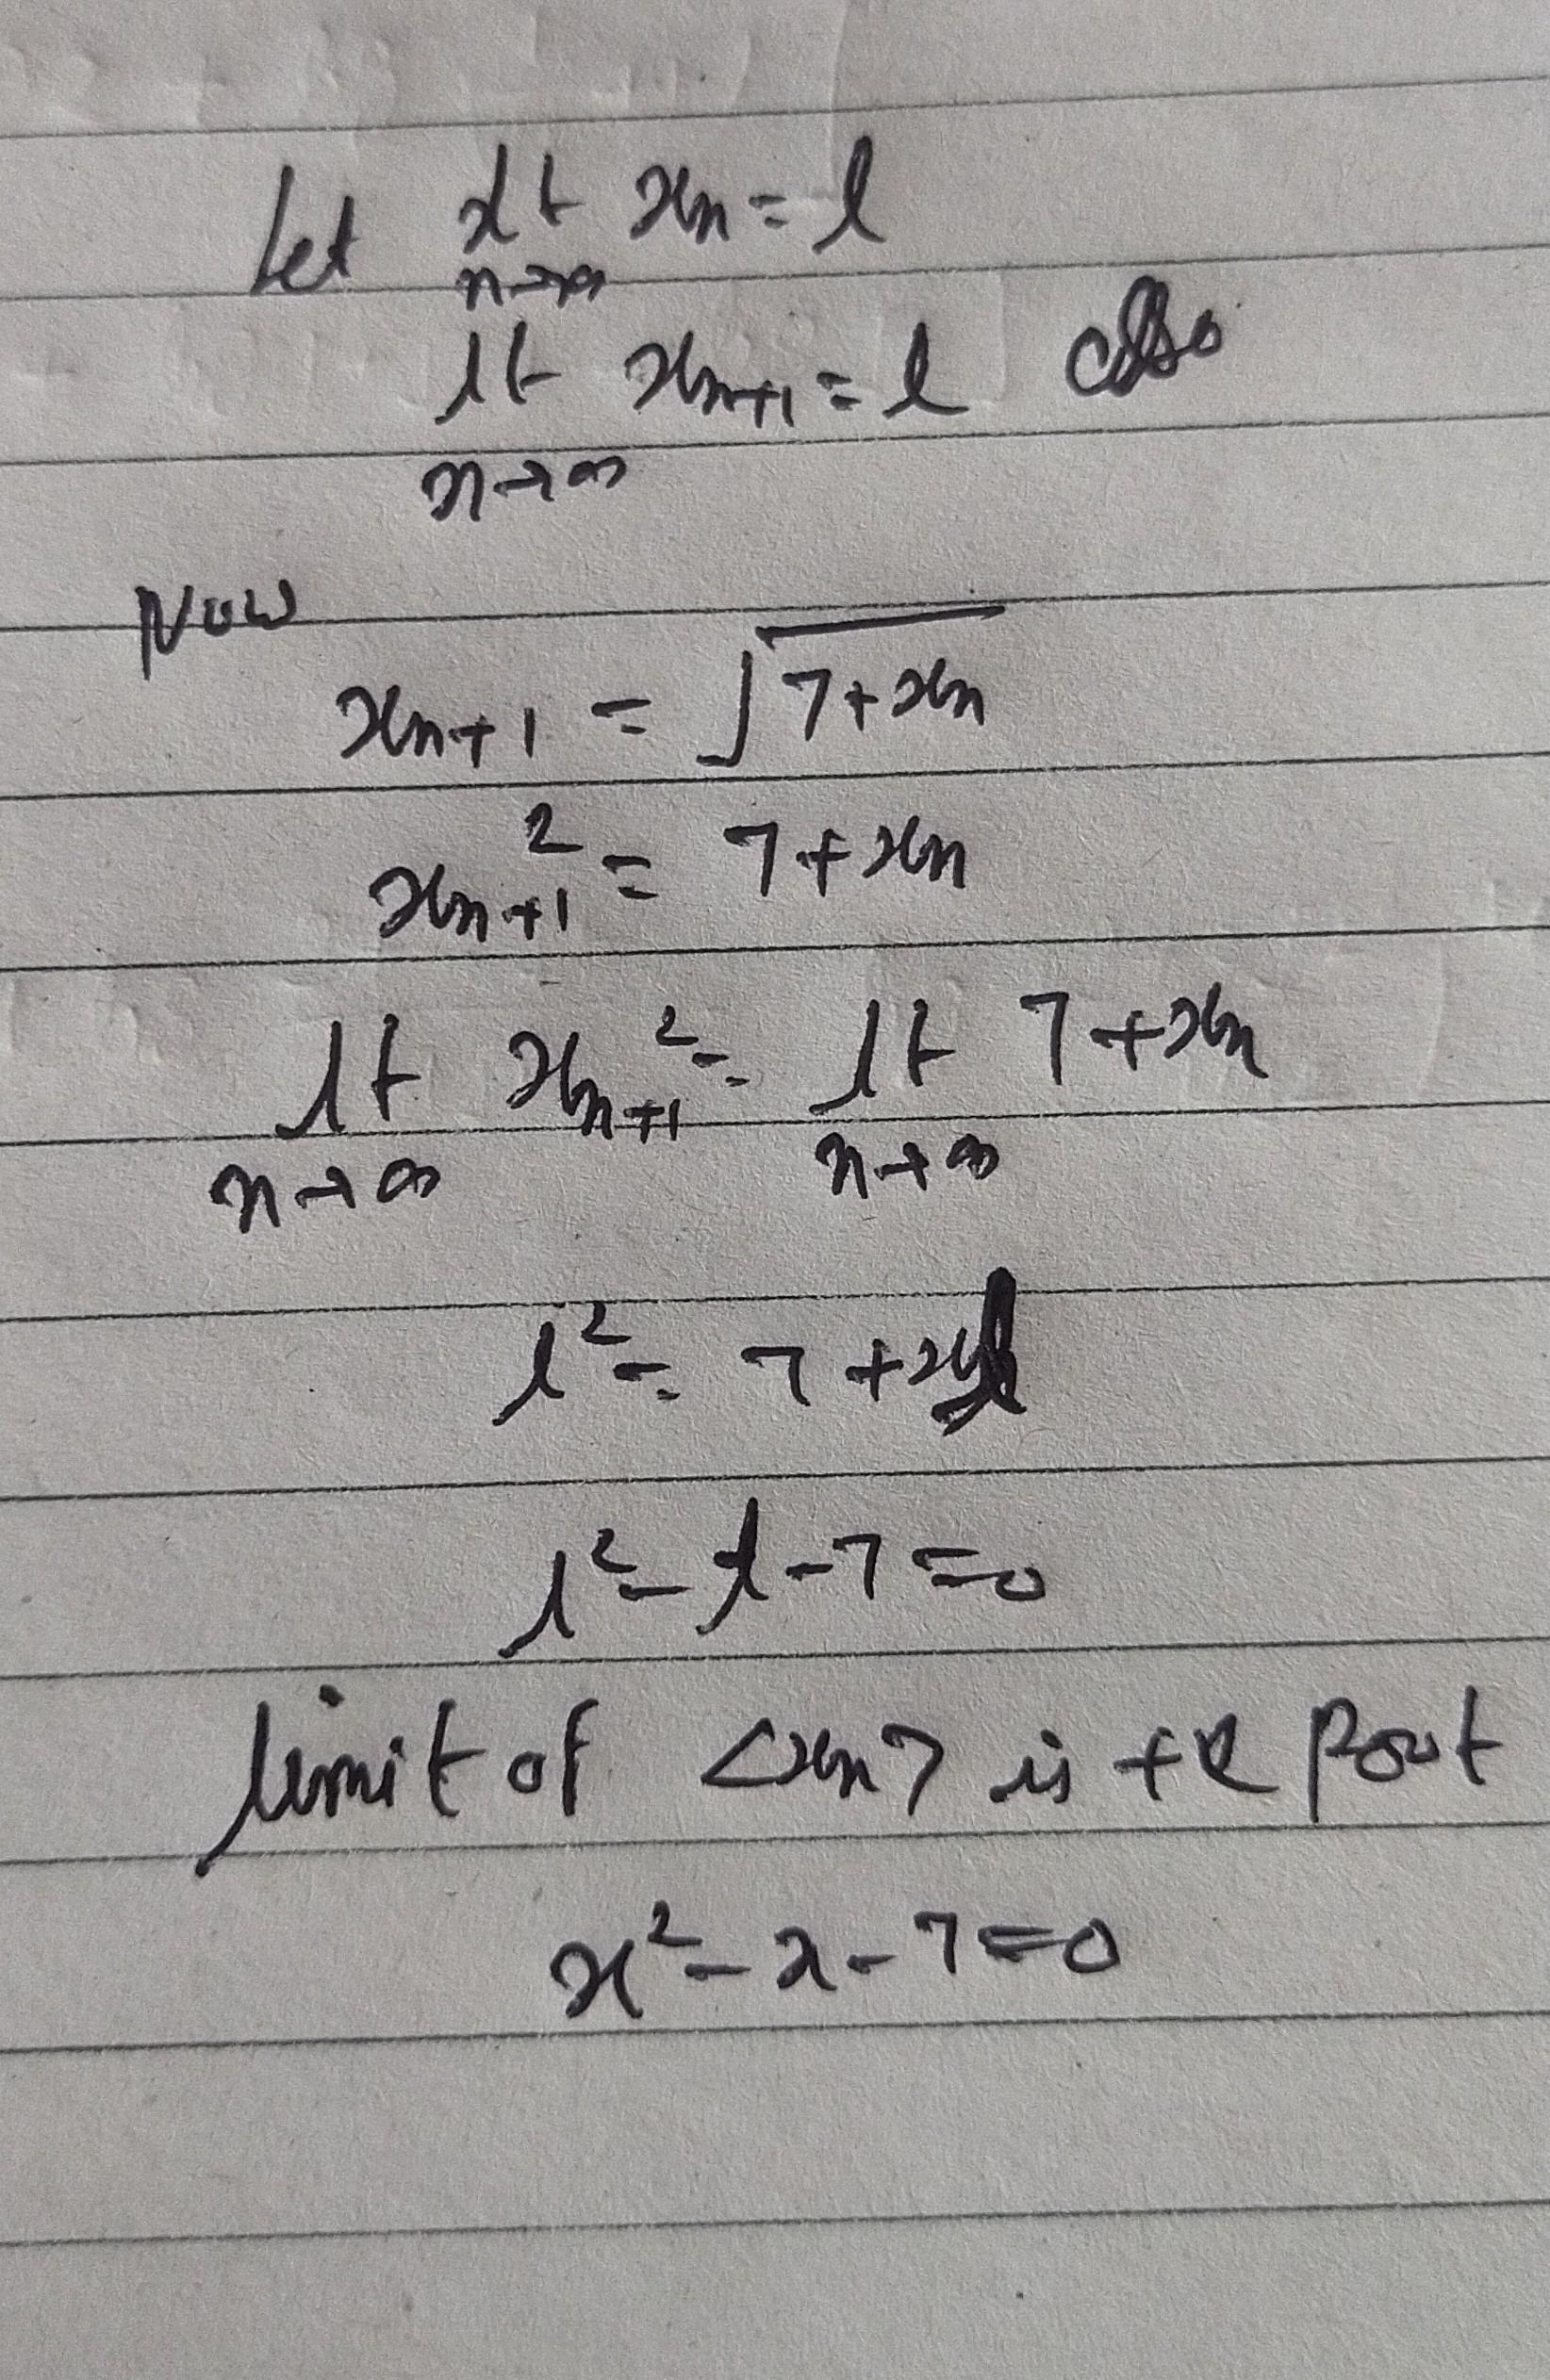 Let lt xn = l
n→∞
lt xn+1 = l also
n→∞
Now
xn+1 = √7+xn
x²n+1 = 7+xn
lt x²n+1 = lt 7+xn
n→∞ n→∞
l² = 7+l
l²-l-7=0
limit of <xn> is +ve root
x²-x-7=0